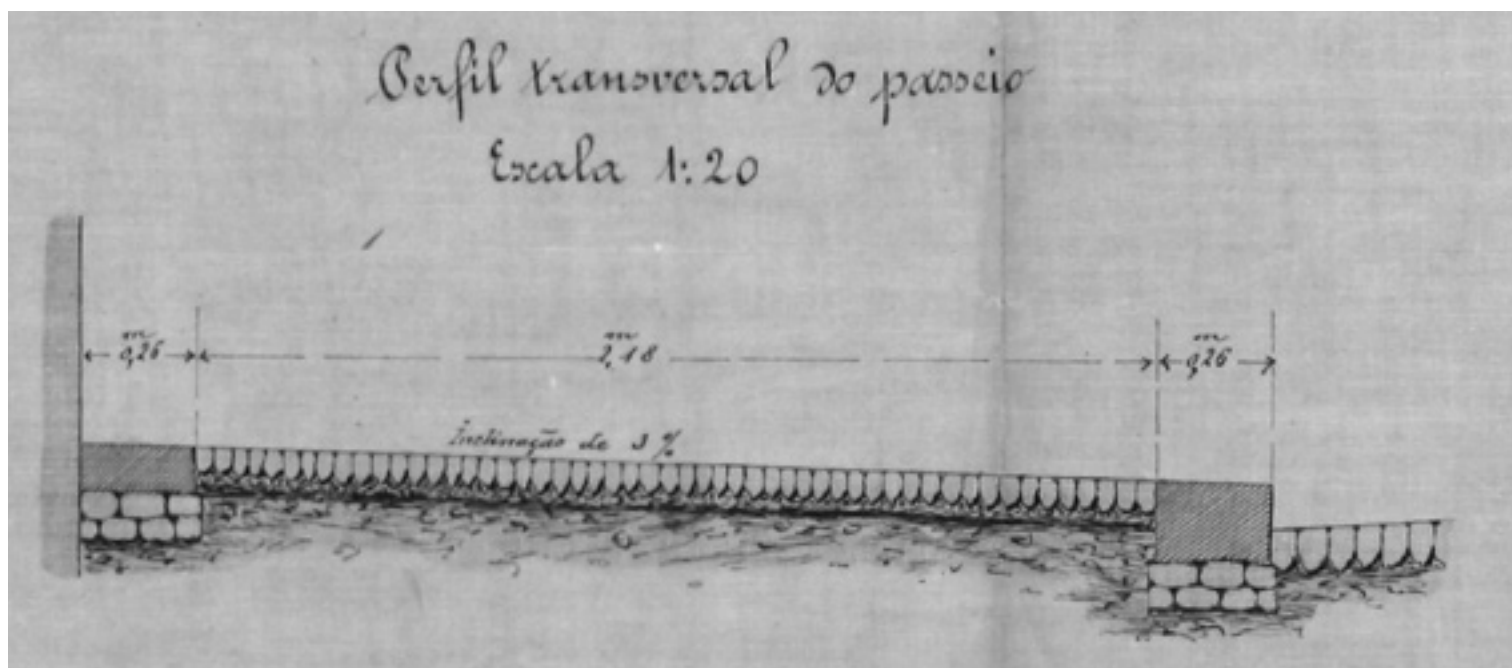 Perfil transversal do passeio
Escala 1:20
m 0,26
m 2,18
m 0,26
Inclinação de 3 %